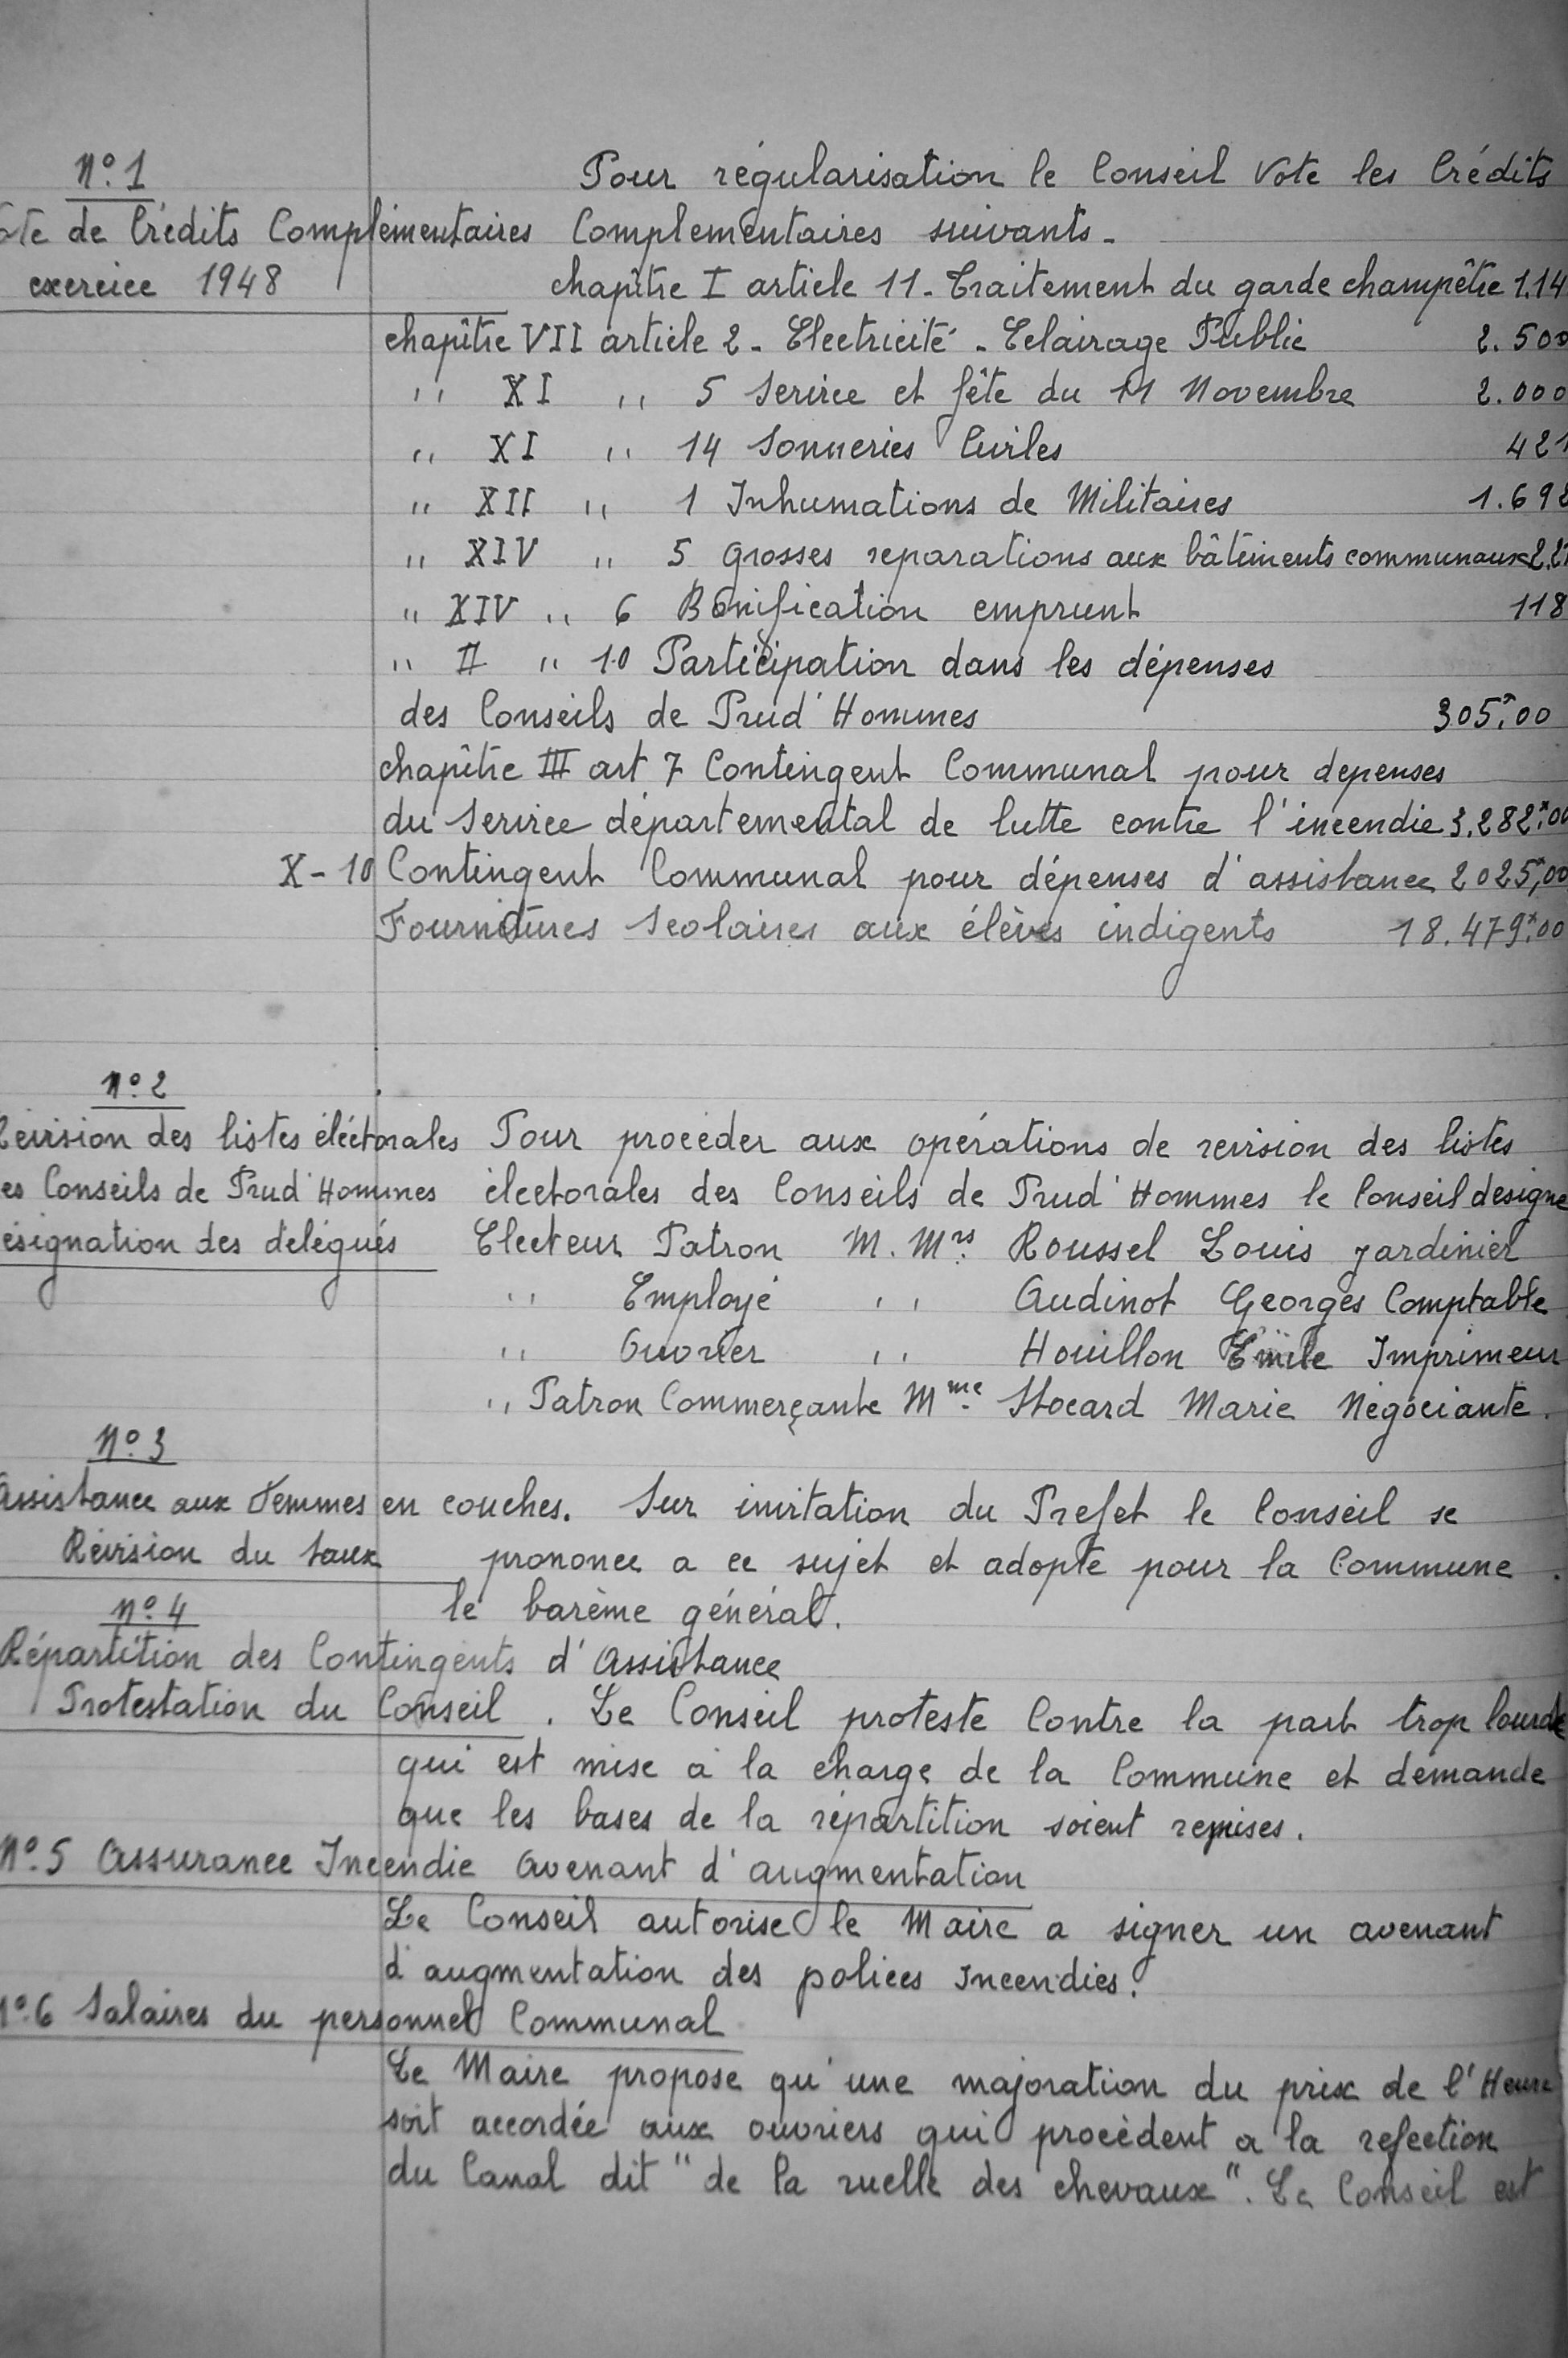 N° 1 Pour régularisation le Conseil Vote les Crédits
de Crédits Complémentaires Complementaires suivants -
exercice 1948 chapître I article 11 - Traitement du garde champêtre 1.14
chapître VII article 2 - Electricité - Eclairage Public 2.500
" XI " 5 Service et fête du 11 Novembre 2.000
" XI " 14 Sonneries Civiles 421
" XII " 1 Inhumations de Militaires 1.698
" XIV " 5 Grosses reparations aux bâtiments communaux 2.2
" XIV " 6 Bonification emprunt 118
" II " 10 Participation dans les dépenses
des Conseils de Prud'Hommes 305,00
chapître III art 7 Contingent Communal pour depenses
du Service départemental de lutte contre l'incendie 3.282,00
X - 10 Contingent Communal pour dépenses d'assistance 2025,00
Fournitures Scolaires aux élèves indigents 18.479,00
N° 2
Révision des listes éléctorales Pour procéder aux opérations de revision des listes
es Conseils de Prud'Hommes électorales des Conseils de Prud'Hommes le Conseil designe
ésignation des délégués Electeur Patron M. Mrs Roussel Louis jardinier
" Employé " Audinot Georges Comptable
" Ouvrier " Houillon Emile Imprimeur
" Patron Commerçante Mme Stocard Marie Négociante.
N° 3
Assistance aux Femmes en couches. Sur invitation du Prefet le Conseil se
Révision du taux prononce a ce sujet et adopte pour la Commune
N° 4 le barème général.
Répartition des Contingents d'Assistance
Protestation du Conseil. Le Conseil proteste Contre la part trop lourde
qui est mise à la charge de la Commune et demande
que les bases de la répartition soient reprises.
N° 5 Assurance Incendie Avenant d'augmentation
Le Conseil autorise le Maire a signer un avenant
d'augmentation des polices Incendies.
N° 6 Salaires du personnel Communal
Le Maire propose qu'une majoration du prix de l'Heure
soit accordée aux ouvriers qui procèdent a la refection
du Canal dit "de la ruelle des chevaux". Le Conseil est